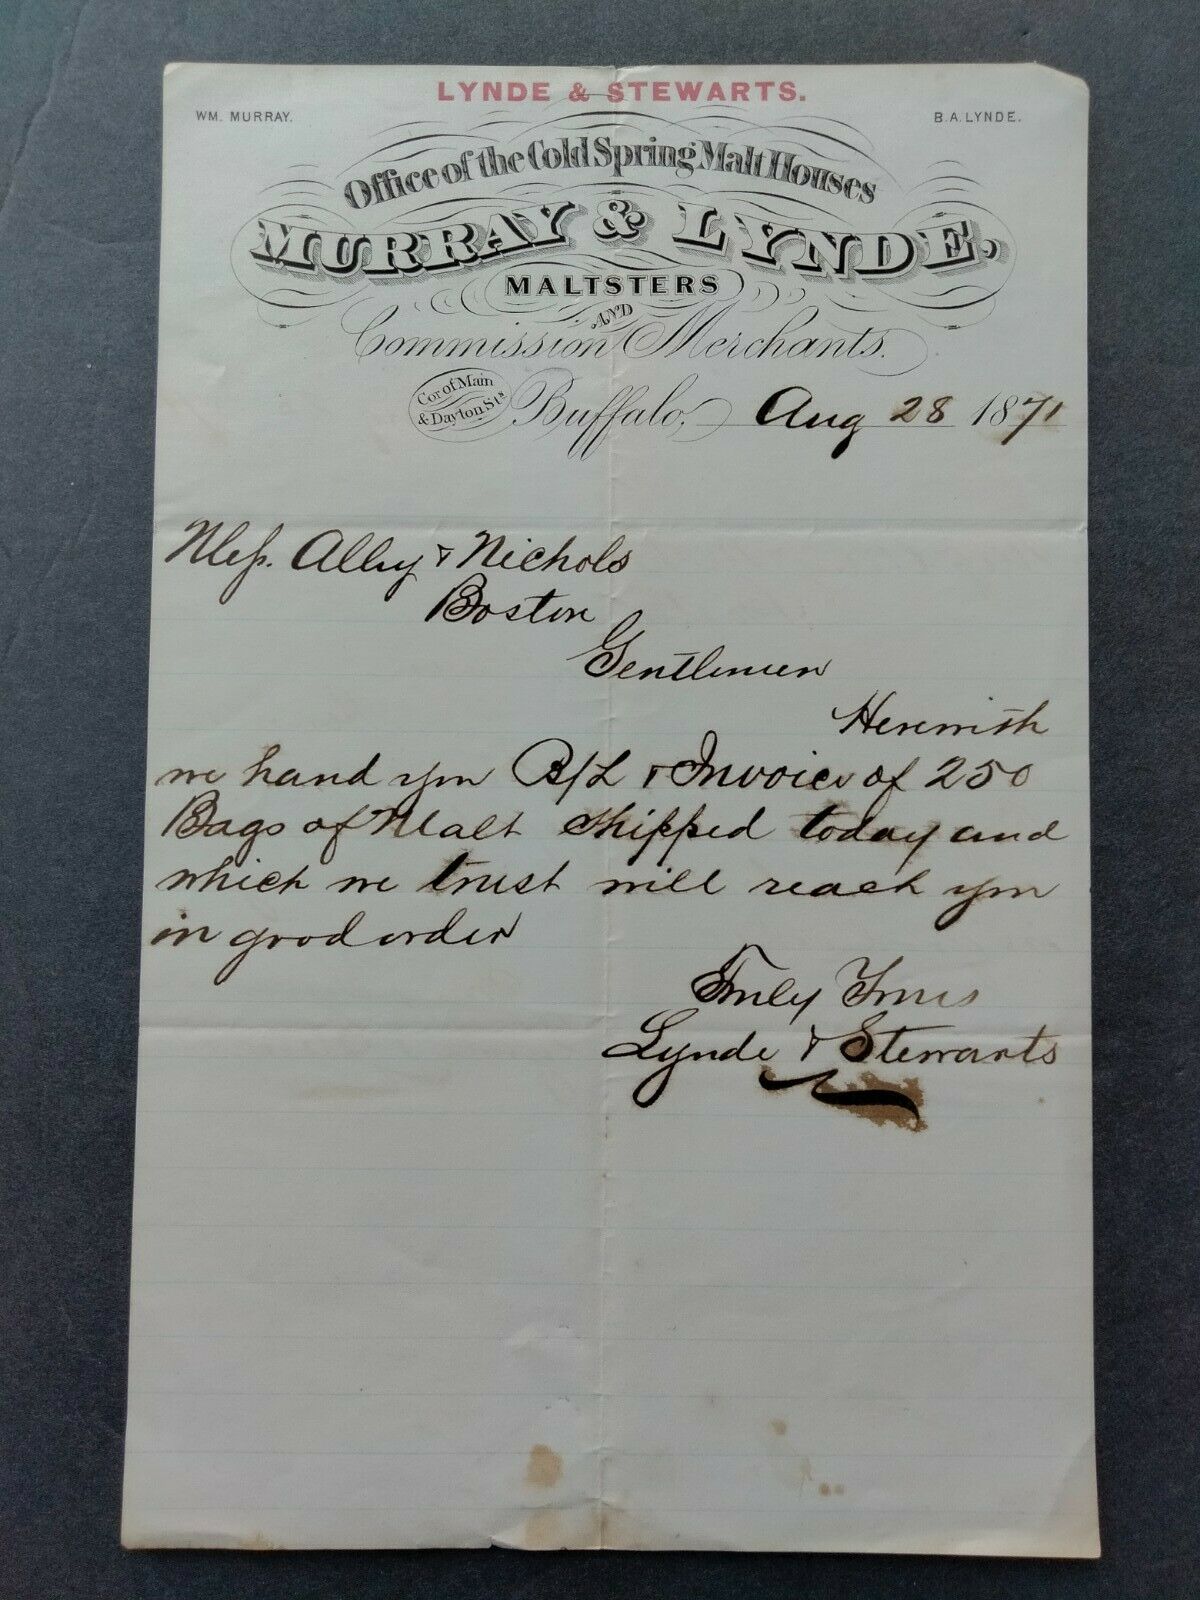 LYNDE & STEWARTS.
WM. MURRAY.
B.A. LYNDE.
Office of the Cold Spring Malt Houses
MURRAY & LYNDE,
MALTSTERS
AND
Commission Merchants.
Cor of Main
& Dayton Sts
Buffalo, Aug 28 1871
Mess. Alley & Nichols
Boston
Gentlemen
Herewith
we hand you B/L & Invoice of 250
Bags of Malt Shipped today and
which we trust will reach you
in good order
Truly Yours
Lynde & Stewarts